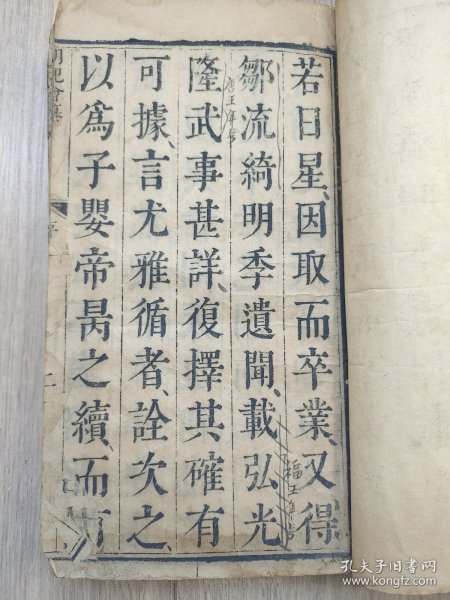 若日星、因取而卒業、又得
鄒流綺明季遺聞、載弘光
福王年号
隆武事甚詳、復擇其確有
唐王年号
可據、言尤雅循者、詮次之、
以為子嬰帝昺之續、而
孔夫子旧书网